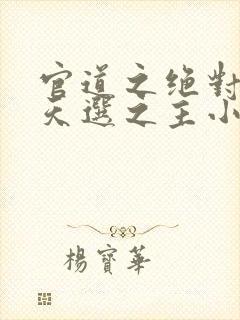 官道之绝對
天選之主小
楊寶華